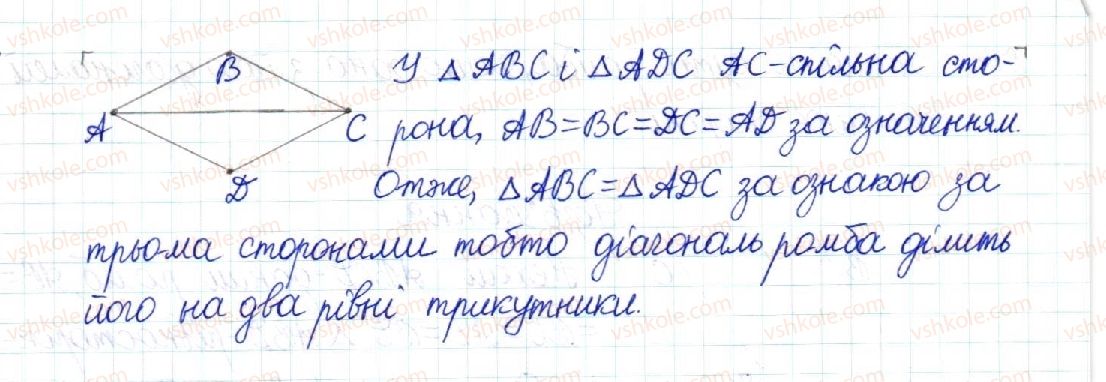 У △ABC і △ADC AC-спільна сто-
B
A
C
рона, AB=BC=DC=AD за означенням.
D
Отже, △ABC=△ADC за ознакою за
трьома сторонами тобто діагональ ромба ділить
його на два рівні трикутники.
vshkole.com